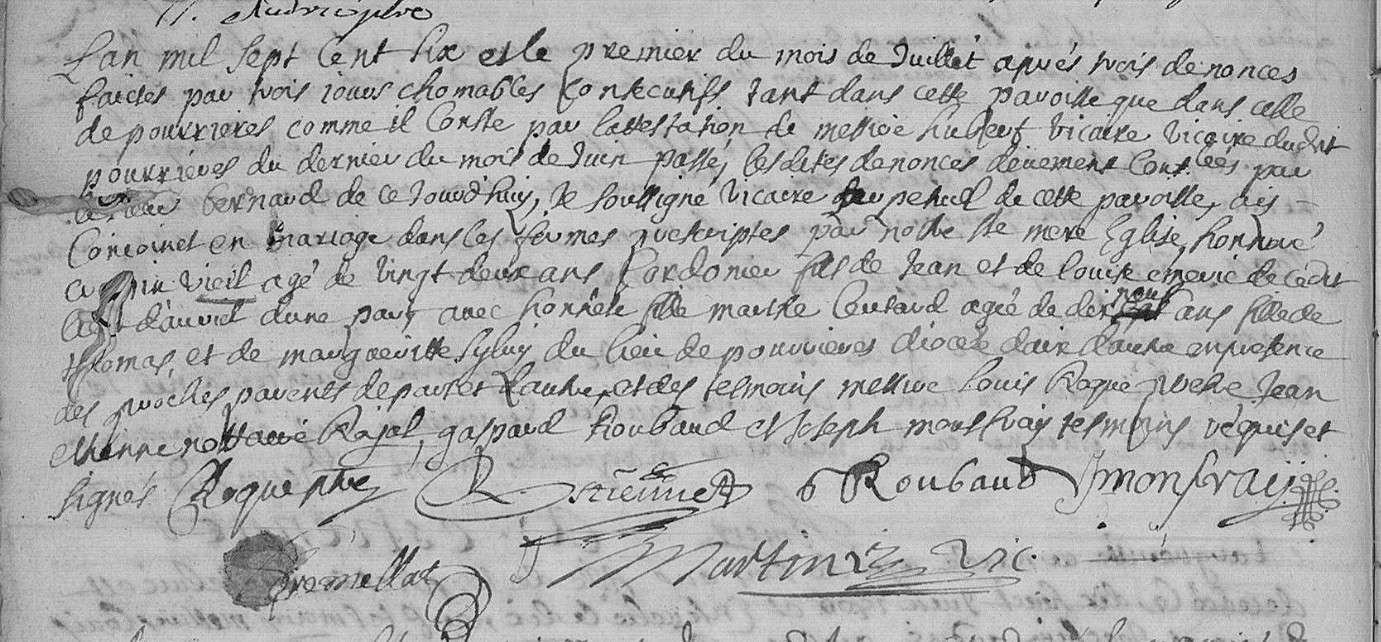 Lan mil sept Cent six et le premier du mois de Juillet aprés trois denonces
faictes par trois jours chomables Consecutifs tant dans cette paroisse que dans celle
de pourrieres comme il Conste par lattestation de messire vicaire vicaire dudit
pourrieres du dernier du mois de Juin passé, lesdites denonces deüement par
bernard de ce Jourd'huy, Je soussigné vicaire de cette paroisse, ais
Conjoinct en mariage dans les formes prescriptes par nostre ste mere Eglise, honnoré
vieil agé de vingt deux ans Cordonier fils de Jean et de louise de cedit
d'une part avec honneste fille marthe agée de dix neuf ans fille de
thomas, et de margueritte du lieu de pourrieres diocese daix dautre en presence
des proches parents de part et dautre, et des tesmoins messire louis Roque prestre Jean
estienne nottaire Royal, gaspard Roubaud et Joseph tesmoins requis et
signés Roque ptre Estienne G Roubaud J monfray
Martin Vic.